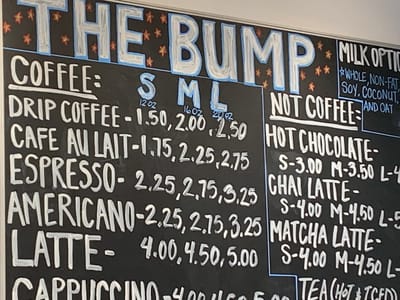 THE BUMP
COFFEE:
S M L
12 oz 16 oz 20 oz
DRIP COFFEE - 1.50, 2.00, 2.50
CAFE AU LAIT - 1.75, 2.25, 2.75
ESPRESSO - 2.25, 2.75, 3.25
AMERICANO - 2.25, 2.75, 3.25
LATTE - 4.00, 4.50, 5.00
CAPPUCCINO - 4.00, 4.50, 5.00
MILK OPTIO
*WHOLE, NON-FAT,
SOY, COCONUT,
AND OAT
NOT COFFEE:
HOT CHOCOLATE -
S-3.00 M-3.50 L-4
CHAI LATTE -
S-4.00 M-4.50 L-5
MATCHA LATTE -
S-4.00 M-4.50 L-
TEA (HOT & ICED)